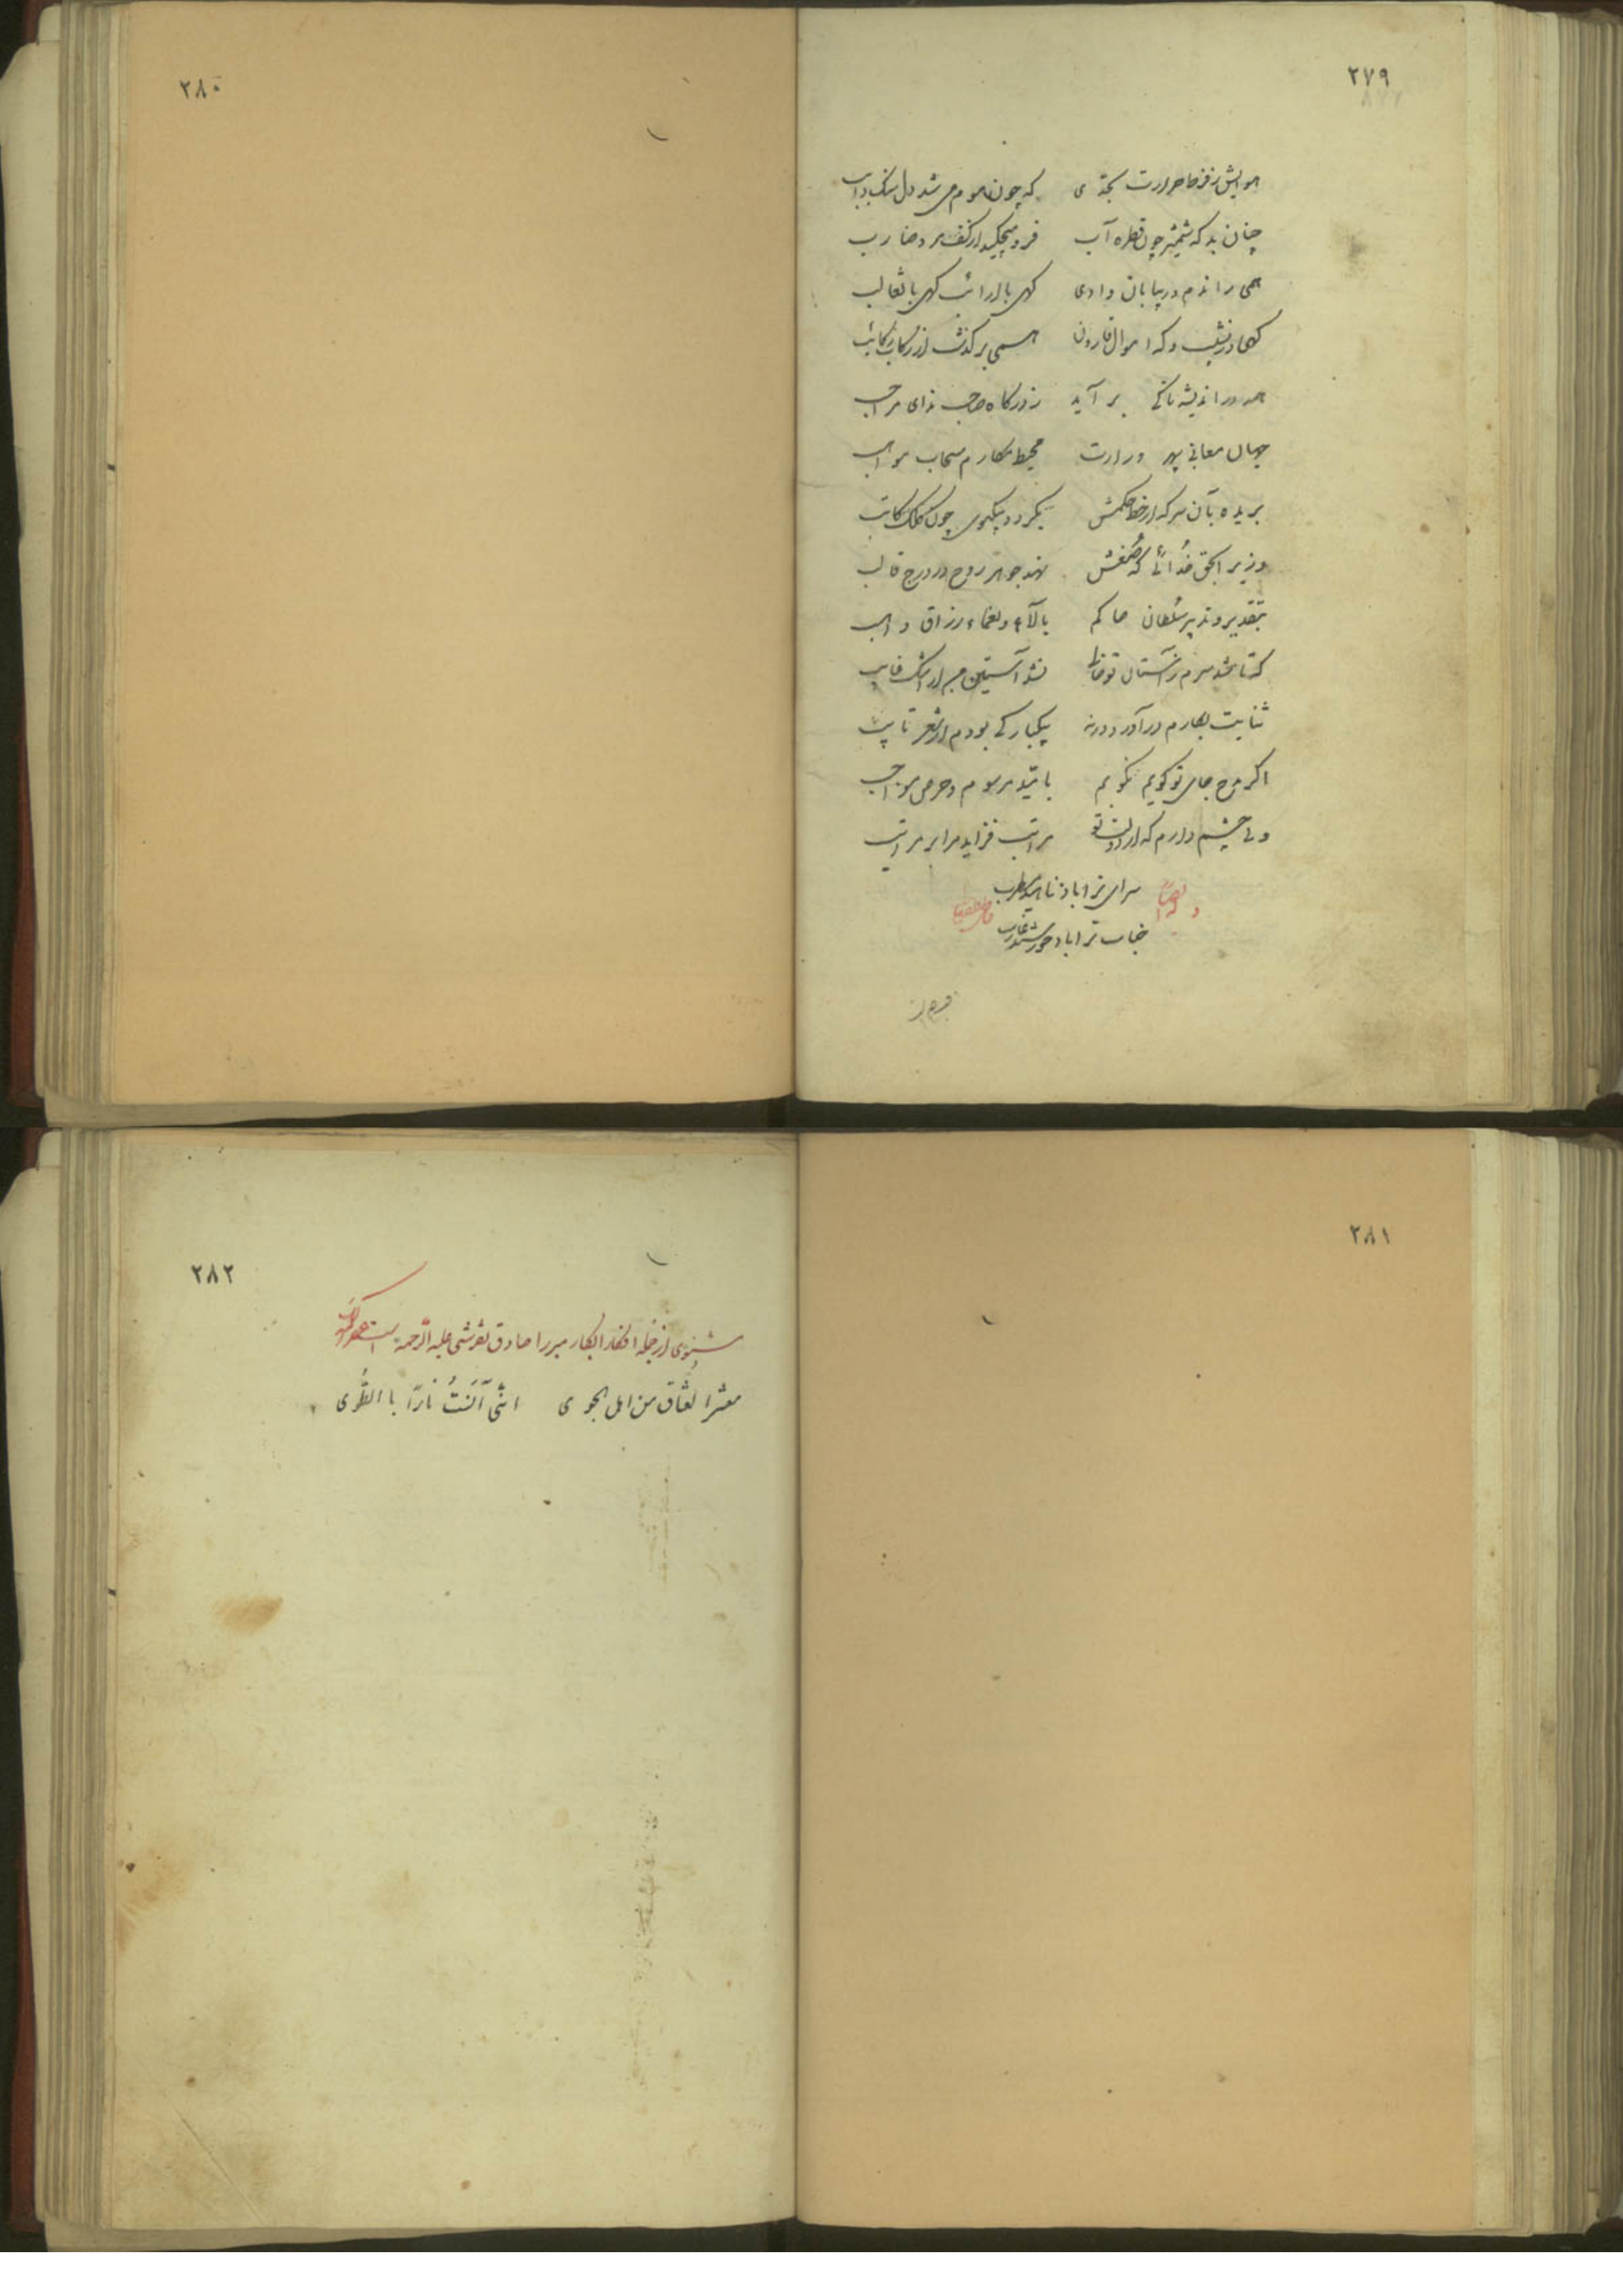 ۲۷۹
هوایش ز فرط حرارت بحدی که چون موم می شد دل سنگ ذایب
چنان بد که شمشیر چون قطره آب فرو میچکید از کف مرد ضارب
همی راندم در بیابان و وادی کهی با ارانب کهی با ثعالب
کهی در نشیب و که اموال قارون همی برکذشت از رکاب رکائب
همه در اندیشه تا کی بر آید ز درکاه صاحب ندای مراحب
جهان معانی سپهر وزارت محیط مکارم سحاب مواهب
بریده بآن سر که از خط حکمش بکردد بیکموی چون کلک کاتب
وزیر ابحق خدائی که صنعش نهد جوهر روح در درج قالب
بتقدیر و تدبیر سلطان حاکم بآلاء و نعماء رزاق واهب
که تا شد سرم ز آستان تو غایب نشد آستین من از اشک غایب
ثنایت بکارم در آورد ورنه بیکبارکی بودم از شعر تایب
اکر مدح جاه تو کویم نکویم بامید مرسوم و حرص مواجب
ولی چشم دارم که از دولت تو مراتب فزاید مرا بر مراتب
وله ایضا
سرای ترا باد ناهید مطرب
جناب ترا باد خورشید حاجب
۲۸۰
۲۸۱
۲۸۲
مثنوی از جمله افکار ابکار میرزا صادق تفرشی علیه الرحمة است
معشر العشاق من اهل الجوی اننی آنست نارا با الطوی